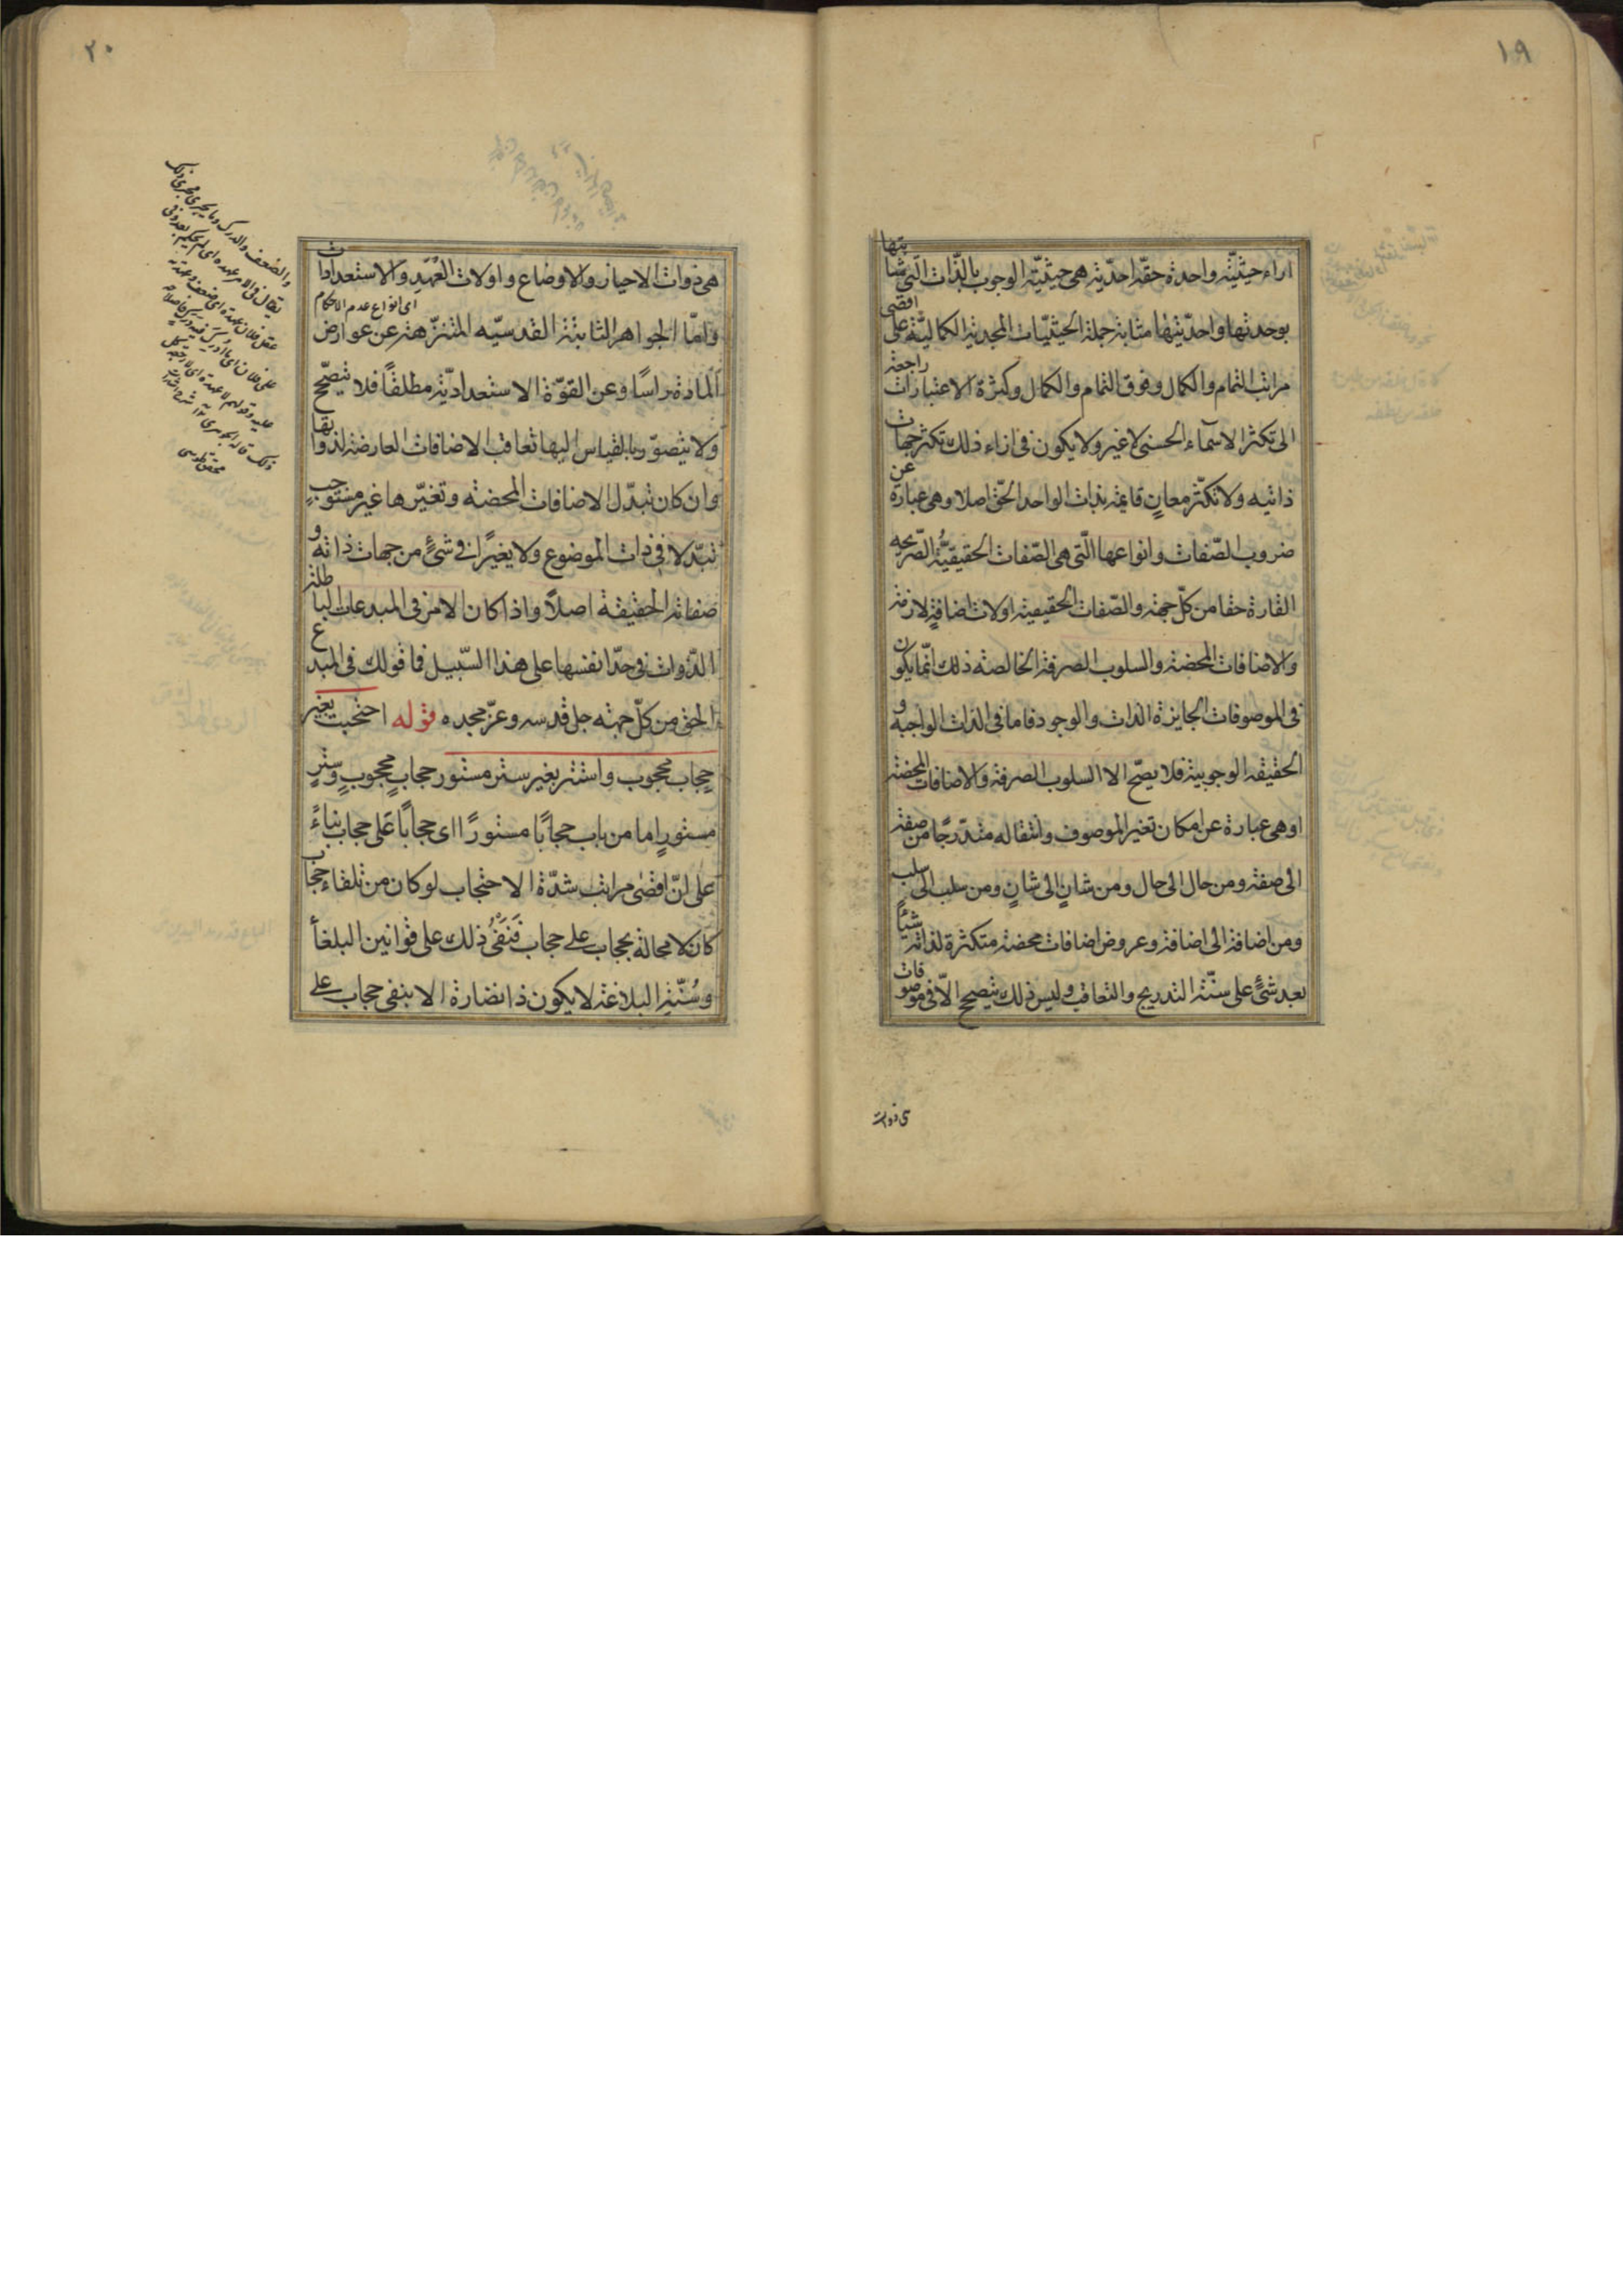 ١٩
ازاء حيثيّة واحدة حقّة احدّية هى حيثيّة الوجوب بالذّات الّتى مثابتها
بوحدتها واحدّيتها مثابة جملة الحيثيّات المجدية الكماليّة على اقصى
مراتب التمام والكمال وفوق التمام والكمال وكثرة الاعتبارات راجعة
الى تكثر الاسمآء الحسنى لاغير ولا يكون فى ازاء ذلك تكثر جهات
ذاتيه ولا تكثّر معانٍ قايمة بذات الواحد الحقّ اصلا وهى عبارة عن
ضروب الصّفات وانواعها الّتى هى الصّفات الحقيقيّة الصّريحه
القارة حقا من كلّ جهة والصّفات الحقيقية اولات اضافةٍ لازمة
والاضافات المحضة والسلوب الصرفة الخالصه ذلك انّما يكون
فى الموصوفات الجايزة الذات والوجود فاما فى الذات الواجبة و
الحقيقه الوجوبية فلا يصّح الا السلوب الصرفة والاضافات المحضة
او هى عبارة عن امكان تغير الموصوف وانتقاله متدّرجًا من صفة
الى صفة ومن حال الى حال ومن شانٍ الى شانٍ ومن سلب الى سلب
ومن اضافة الى اضافة وعروض اضافات محضة متكثرة لذاته شيئًا
بعد شئٍ على سنّة التدريج والتعاقب وليس ذلك يتصحح الّا فى موصوفات
هى ذوات
٢٠
هى ذوات الاحياز والاوضاع واولات العُهَدِ والاستعدادات
اى انواع عدم الاحكام
وامّا الجواهر الثابتة القدسيّه المتنزّهة عن عوارض
المادة راسًا وعن القوّة الاستعدادّية مطلقًا فلا تتصحّح
ولا يتصوّر بالقياس اليها تعاقب الاضافات العارضة لذواتها
وان كان تبدّل الاضافات المحضه وتغيّرها غير مستوجبٍ
تبدّلا فى ذات الموضوع ولا تغيرًا فى شئٍ من جهات ذاته و
صفاته الحقيقة اصلًا واذا كان الامر فى المبدعات الباطلة
الذّوات فى حدّ انفسها على هذا السّبيل فما قولك فى المبدع
الحق من كلّ جهته جل قدسه وعزّ مجده قوله احتجبت بغير
حجاب محجوب واستتر بغير ستر مستور حجابٍ محجوبٍ وسترٍ
مستورٍ اما من باب حجابًا مستورًا اى حجابًا على حجاب بناءً
على انّ اقصٰى مراتب شدّة الاحتجاب لو كان من تلقاء حجاب
كان لا محالة بحجاب على حجاب فَنَفْىُ ذلك على قوانين البلغأ
وسُنّةِ البلاغة لا يكون ذا نضارة الا بنفى حجاب على
والضعف والدرك وما يجرى مجرى ذلك
يقال فى الامر عهده اى لم يحكم بعد وفى
عقل فلان عهدة اى ضعف وعهدته
على فلان اى ما ادرك فيه من درك فاصلاحه